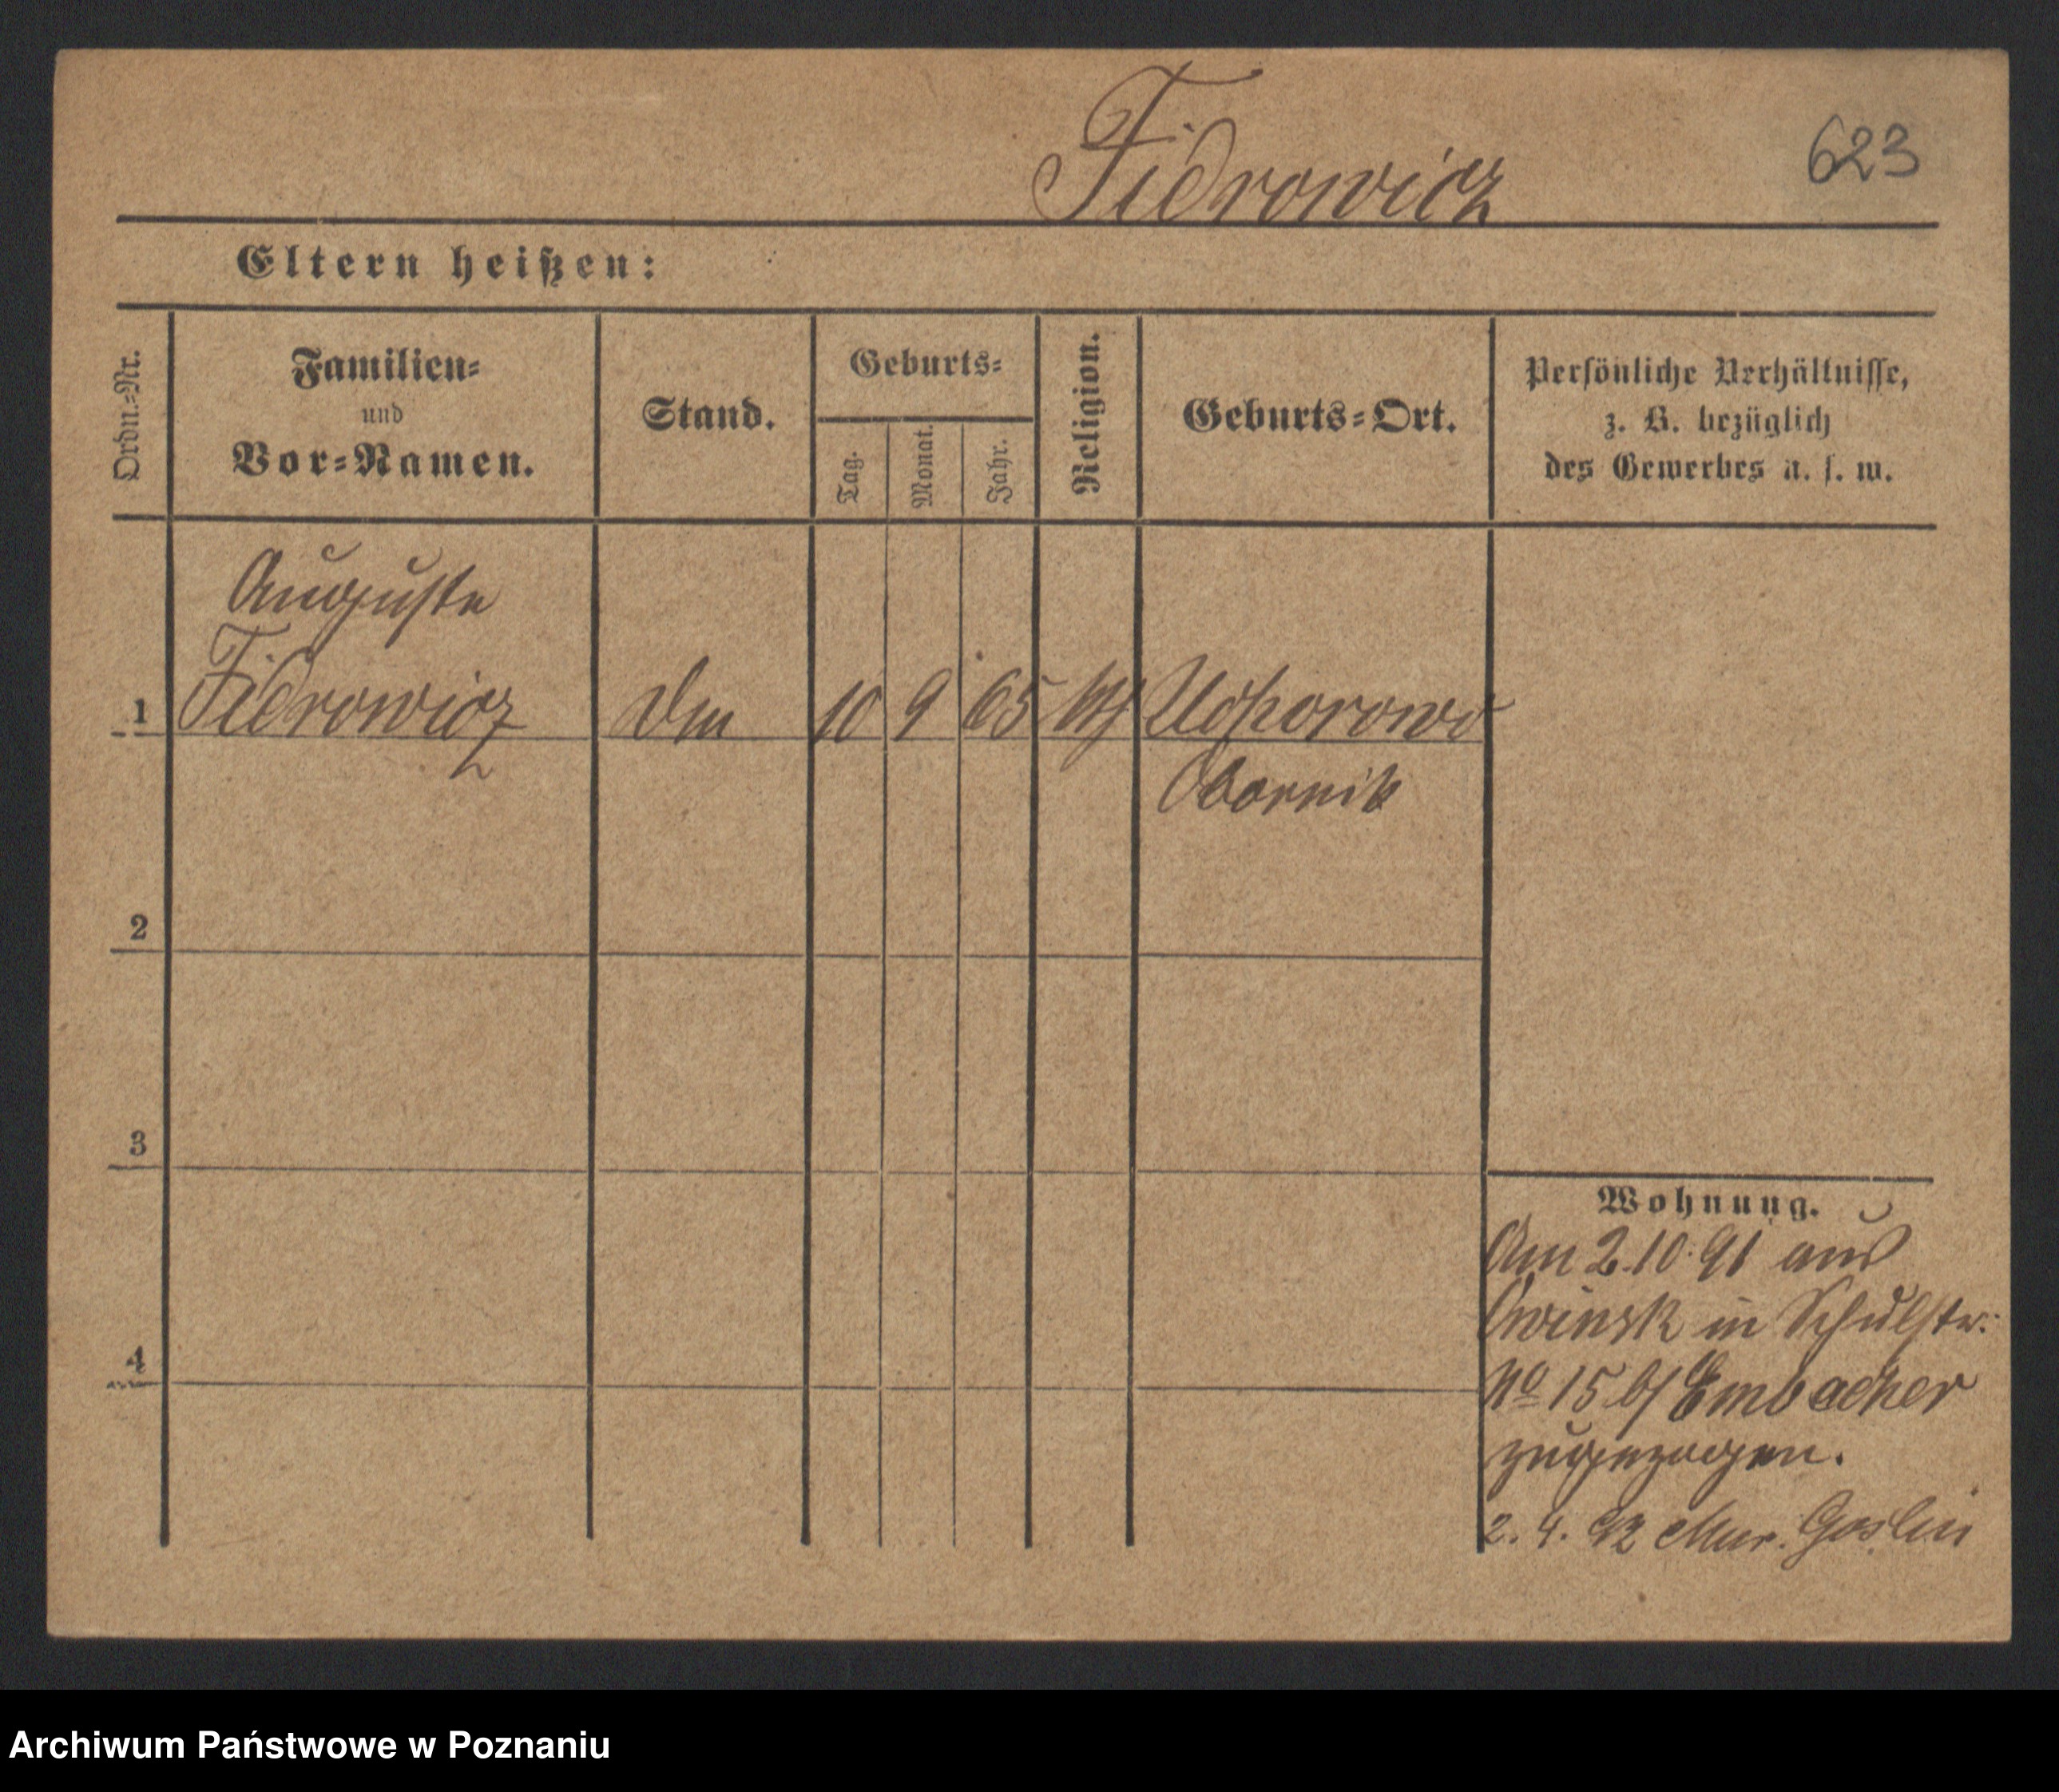 Fidrowicz
623
Eltern heißen:
Ordn.-Nr.
Familien-
und
Vor-Namen.
Stand.
Geburts-
Tag.
Monat.
Jahr.
Religion.
Geburts-Ort.
Persönliche Verhältnisse,
z. B. bezüglich
des Gewerbes u. s. w.
Auguste
1 Fidrowicz 10 9 65 Uchorowo
Obornik
2
3
4
Wohnung.
Am 2.10.91 aus
Owinsk in Schulstr:
No 15 b/ Embacher
zugezogen.
2. 4. 92 Mur. Goslin
Archiwum Państwowe w Poznaniu